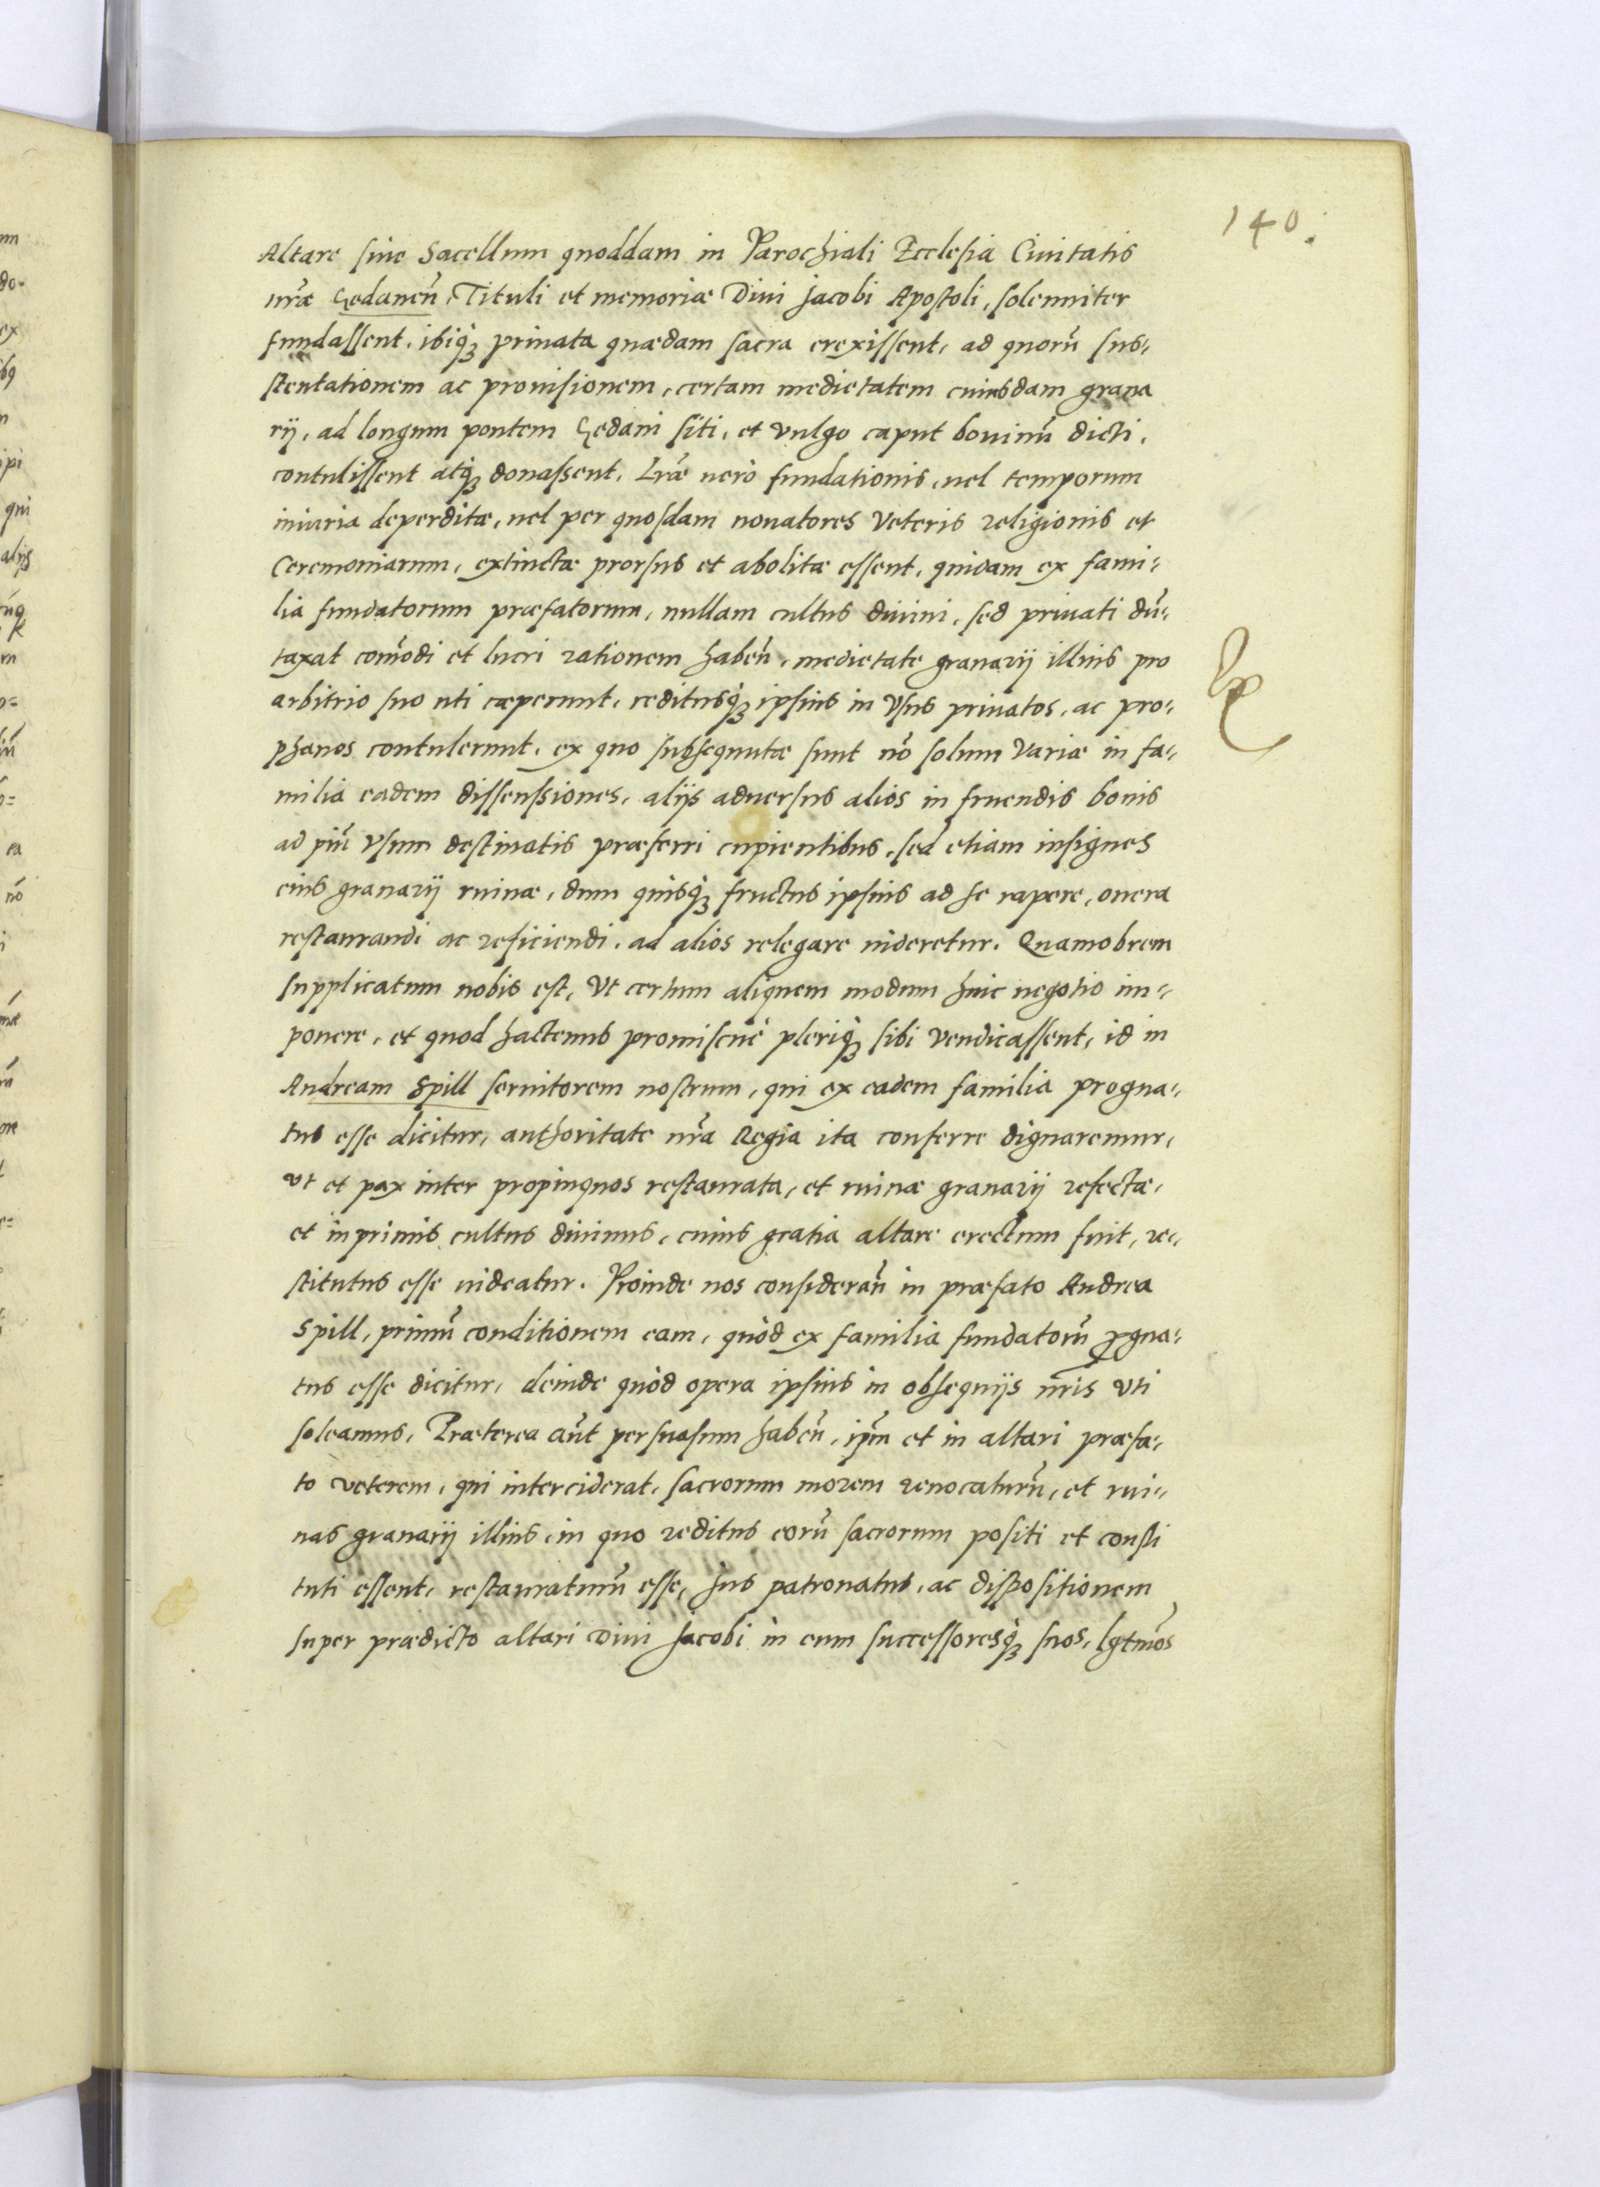 140.
Altare siue Sacellum quoddam in Parochiali Ecclesia Ciuitatis
nr̃æ Gedaneñ, Tituli et memoriæ Diui Jacobi Apostoli, solenniter
fundassent, ibiq́ꝫ priuata quædam sacra erexissent, ad quorũ sus-
stentationem ac prouisionem, certam medietatem cuiusdam grana
rij, ad longum pontem Gedani siti, et vulgo caput bouinũ dicti,
contulissent atq́ꝫ donassent. Lr̃æ uerò fundationis, uel temporum
iniuria deperditæ, uel per quosdam nouatores Veteris religionis et
Ceremoniarum, extinctæ prorsus et abolitæ essent, quidam ex fami-
lia fundatorum præfatorum, nullam cultus diuini, sed priuati dũ-
taxat com̃odi et lucri rationem habeñ, medietate granarij illius pro
arbitrio suo uti cæperunt, reditusq́ꝫ ipsius in Vsus priuatos, ac pro-
phanos contulerunt, ex quo subsequutæ sunt nõ solum Variæ in fa-
milia eadem dissensiones, alijs aduersus alios in fruendis bonis
ad piũ Vsum destinatis præferri cupientibus, sed etiam insignes
eius granarij ruinæ, dum quisq́ꝫ fructus ipsius ad se rapere, onera
restaurandi ac reficiendi, ad alios relegare uideretur. Quamobrem
supplicatum nobis est, Vt certum aliquem modum huic negotio im-
ponere, et quod hactenus promiscuè pleriq́ꝫ sibi vendicassent, id in
Andream Spill seruitorem nostrum, qui ex eadem familia progna-
tus esse dicitur, authoritate nr̃a Regia ita conferre dignaremur,
vt et pax inter propinquos restaurata, et ruinæ granarij refectæ,
et inprimis cultus diuinus, cuius gratia altare erectum fuit, re-
stitutus esse uideatur. Proinde nos considerañ in præfato Andrea
Spill, primũ conditionem eam, quòd ex familia fundatorũ ꝓgna-
tus esse dicitur, deinde quòd opera ipsius in obsequijs nr̃is Vti
soleamus, Præterea aũt persuasum habeñ, ip̃m et in altari præfa-
to veterem, qui interciderat, sacrorum morem reuocaturũ, et rui-
nas granarij illius, in quo reditus eorũ sacrorum positi et consti
tuti essent, restauraturũ esse, Jus patronatus, ac dispositionem
super prædicto altari Diui Jacobi in eum successoresq́ꝫ suos, lgtm̃os